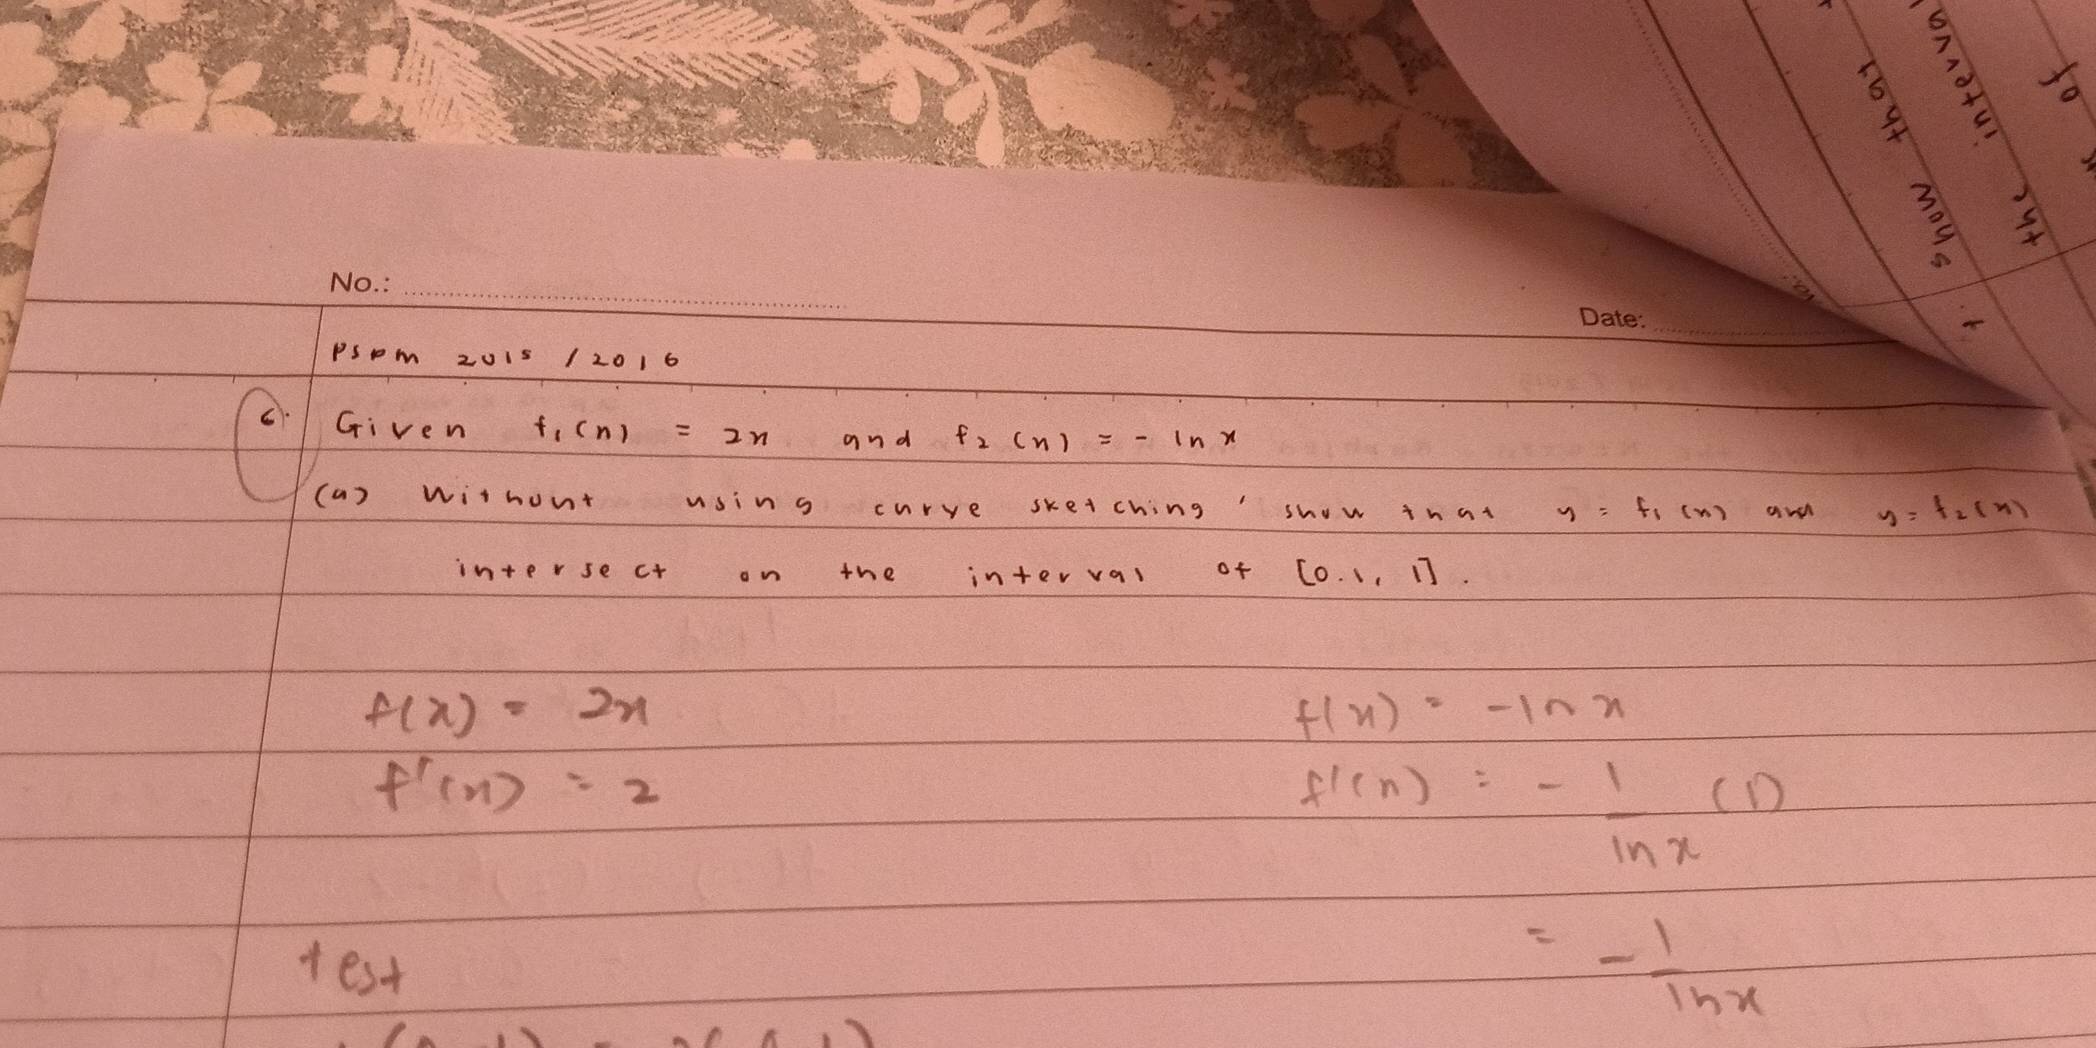 No.:
Date:
PSPM 2015 / 2016
6. Given f₁(x) = 2x and f₂(x) = - ln x
(a) Without using curve sketching, show that y = f₁(x) and y = f₂(x)
intersect on the interval of [0.1, 1].
f(x) = 2x
f(x) = -ln x
f'(x) = 2
f'(x) = - 1/ln x (1)
= - 1/ln x
test
show that
the interval
of